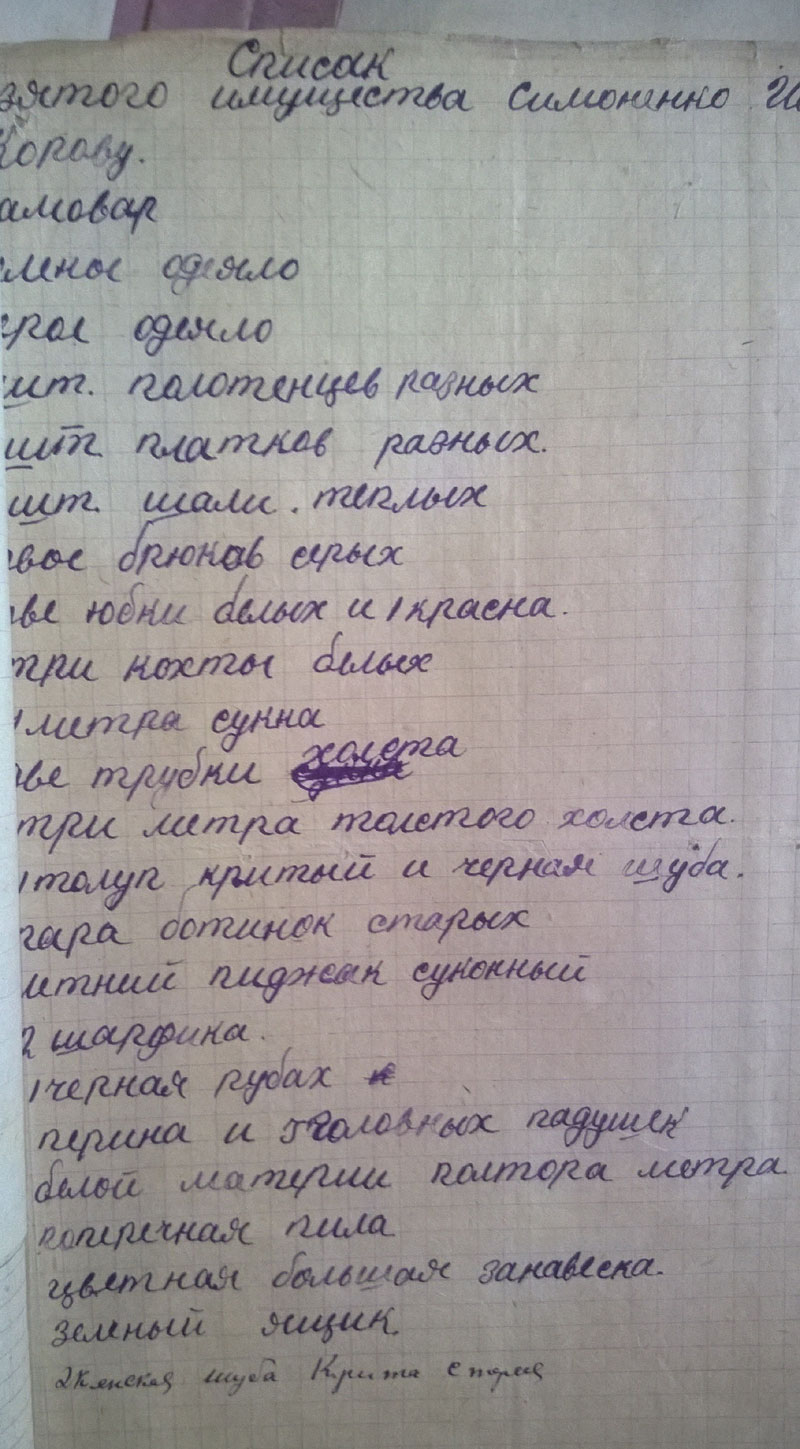 Список
зятого имущества Симоненко
Корову.
амовар
одеяло
одеяло
шт. полотенцев разных
шт. платков разных.
шт. шали. теплых
вое брюков серых
ве юбки белых и 1 красна.
три кохты белых
метра сукна
ве трубки холста
три метра толстого холста.
1 толуп критый и черная шуба.
пара ботинок старых
пиджак суконный
2 шарфика.
1 черная рубах
перина и 5 головных падушек
белой материи полтора метра
поперечная пила
цветная большая занавеска.
зеленый ящик.
шуба Крита